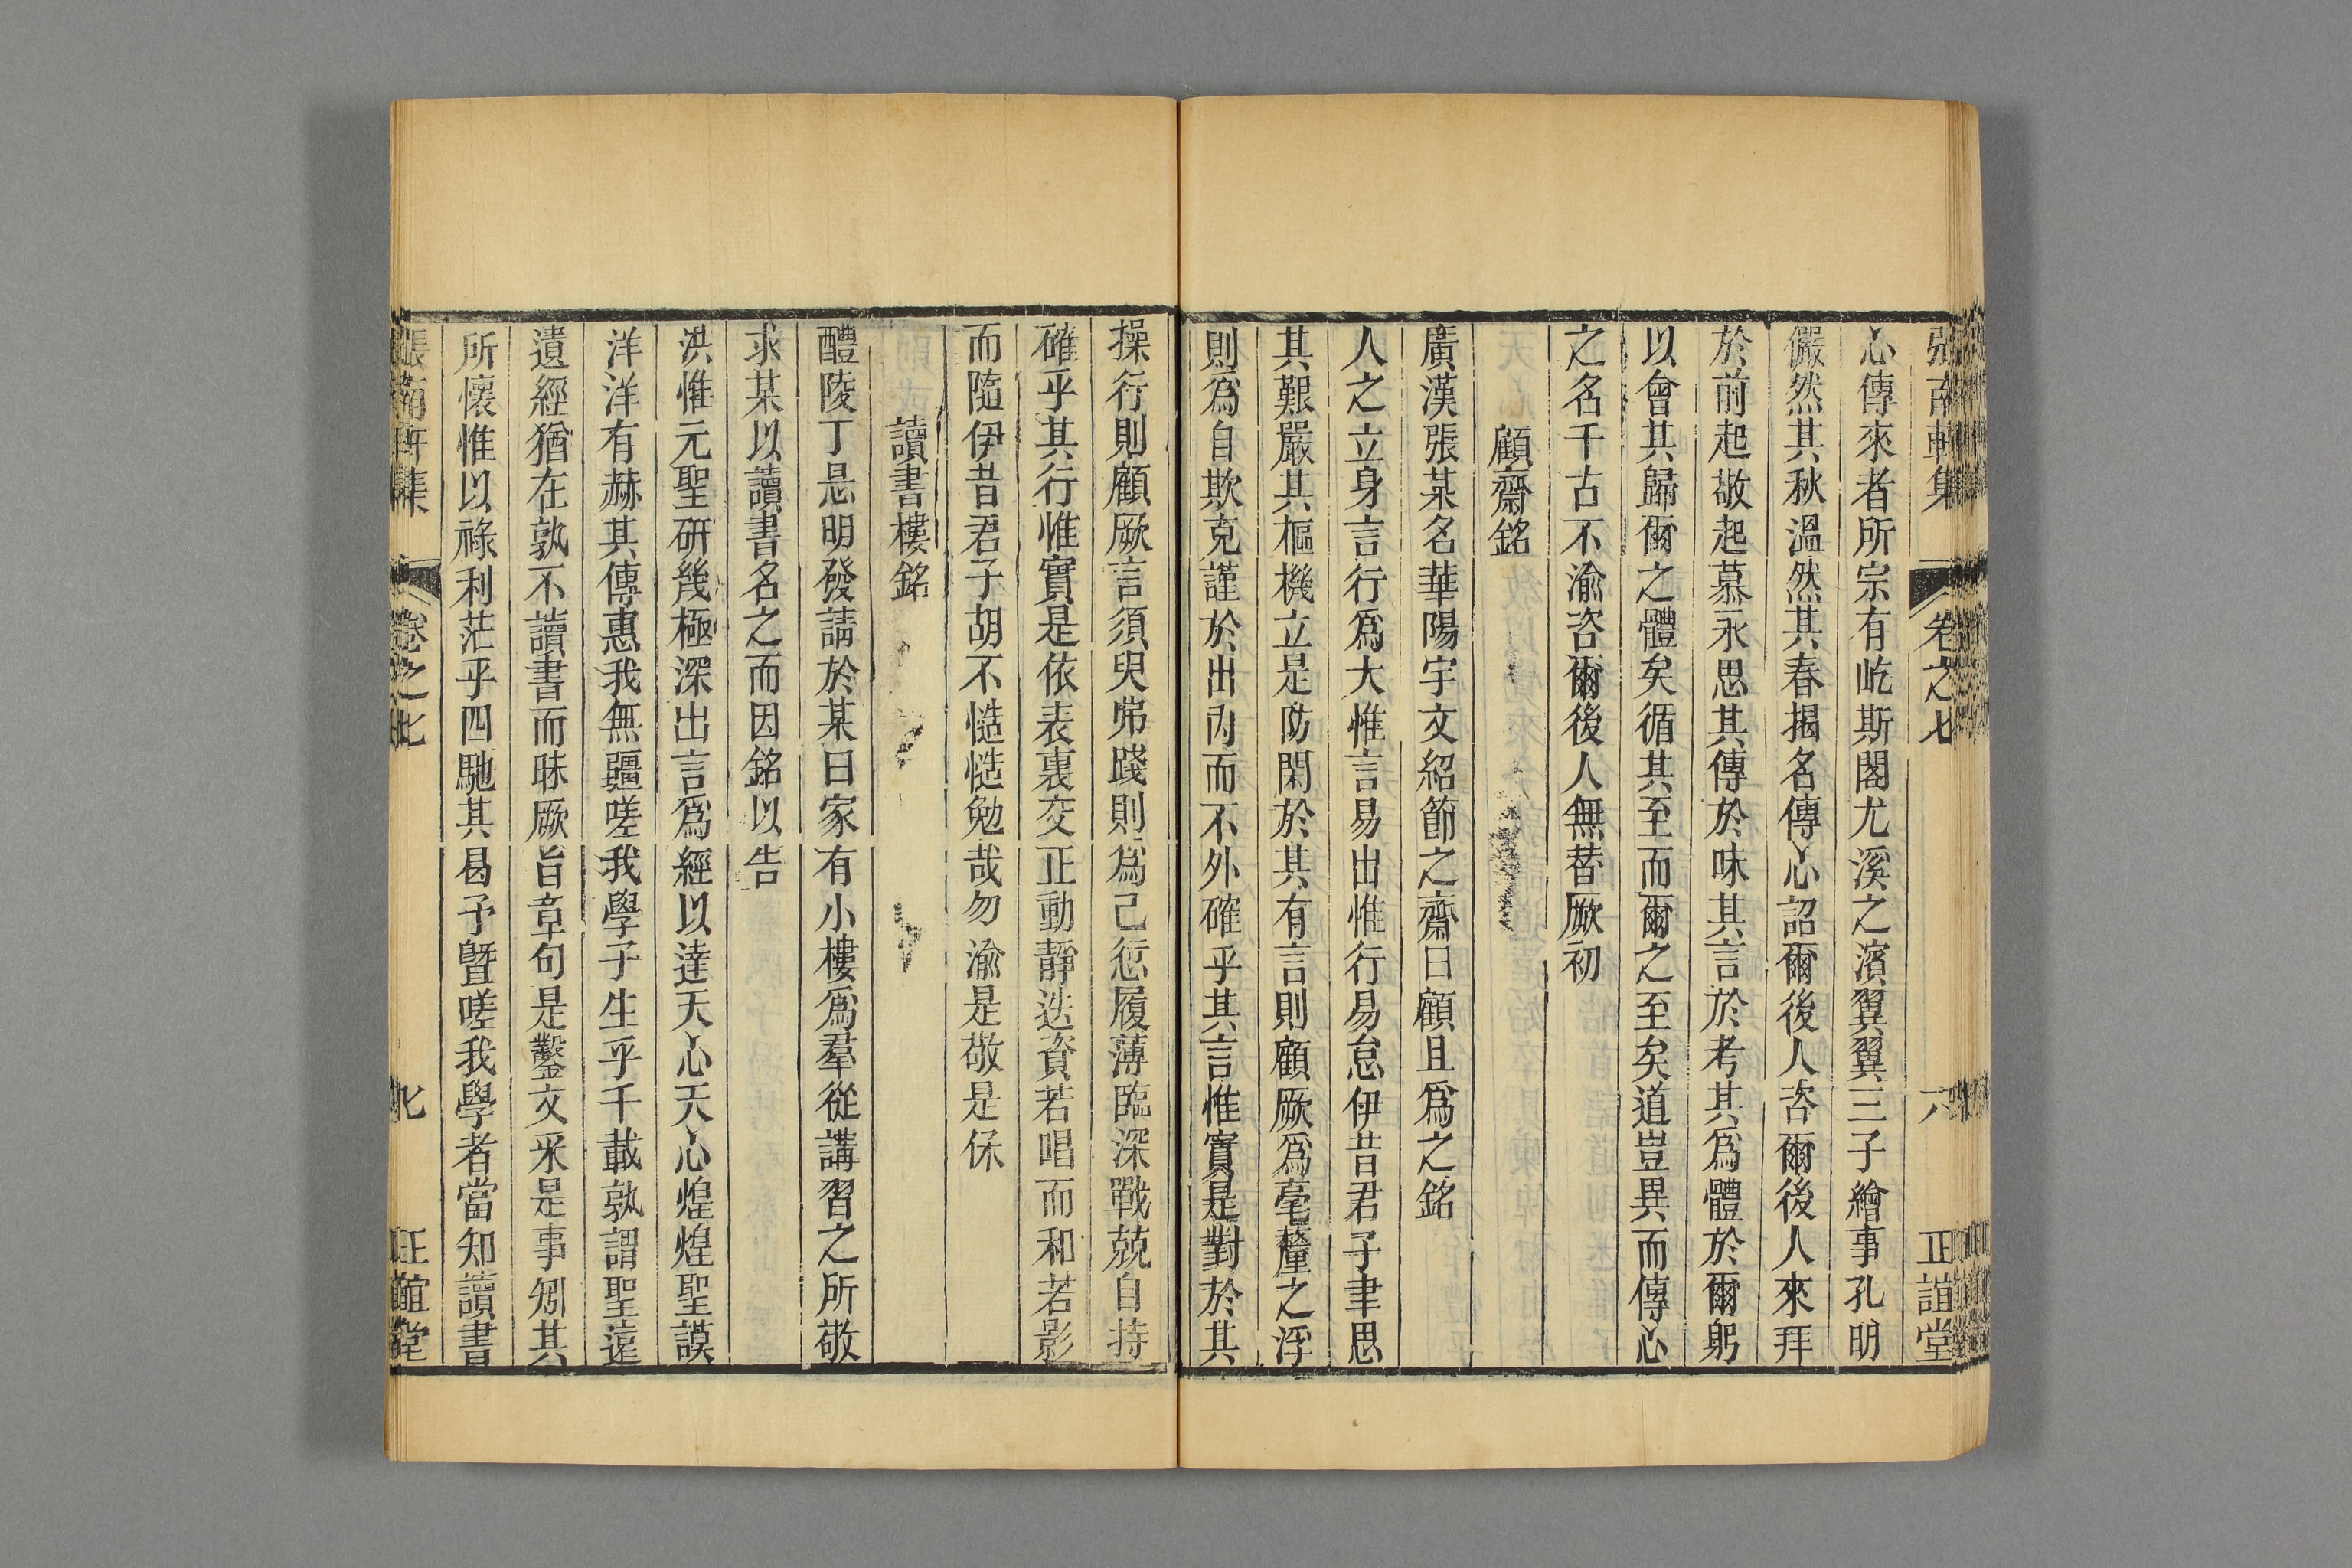 張南軒集 卷之七 六 正誼堂
心傳來者所宗有屹斯閣尤溪之濱翼翼三子繪事孔明
儼然其秋溫然其春揭名傳心詔爾後人咨爾後人來拜
於前起敬起慕永思其傳於味其言於考其爲體於爾躬
以會其歸爾之體矣循其至而爾之至矣道豈異而傳心
之名千古不渝咨爾後人無替厥初
顧齋銘
廣漢張某名華陽宇文紹節之齋曰顧且爲之銘
人之立身言行爲大惟言易出惟行易怠伊昔君子聿思
其艱嚴其樞機立是防閑於其有言則顧厥爲毫釐之浮
則爲自欺克謹於出內而不外確乎其言惟實是對於其
操行則顧厥言須臾弗踐則爲己愆履薄臨深戰兢自持
確乎其行惟實是依表裏交正動靜迭資若唱而和若影
而隨伊昔君子胡不慥慥勉哉勿渝是敬是保
讀書樓銘
醴陵丁忌明發請於某曰家有小樓爲羣從講習之所敬
求某以讀書名之而因銘以告
洪惟元聖研幾極深出言爲經以達天心天心煌煌聖謨
洋洋有赫其傳惠我無疆嗟我學子生乎千載孰謂聖遠
遺經猶在孰不讀書而昧厥旨章句是鑿文采是事矧其
所懷惟以祿利茫乎四馳其曷予曁嗟我學者當知讀書
張南軒集 卷之七 七 正誼堂